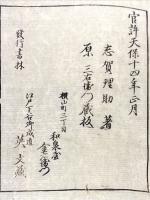 官許天保十四年正月
志賀理助 著
原 三右衛門蔵板
横山町三丁目
和泉屋
金右衛門
江戸下谷御成道
英文蔵
發行書林